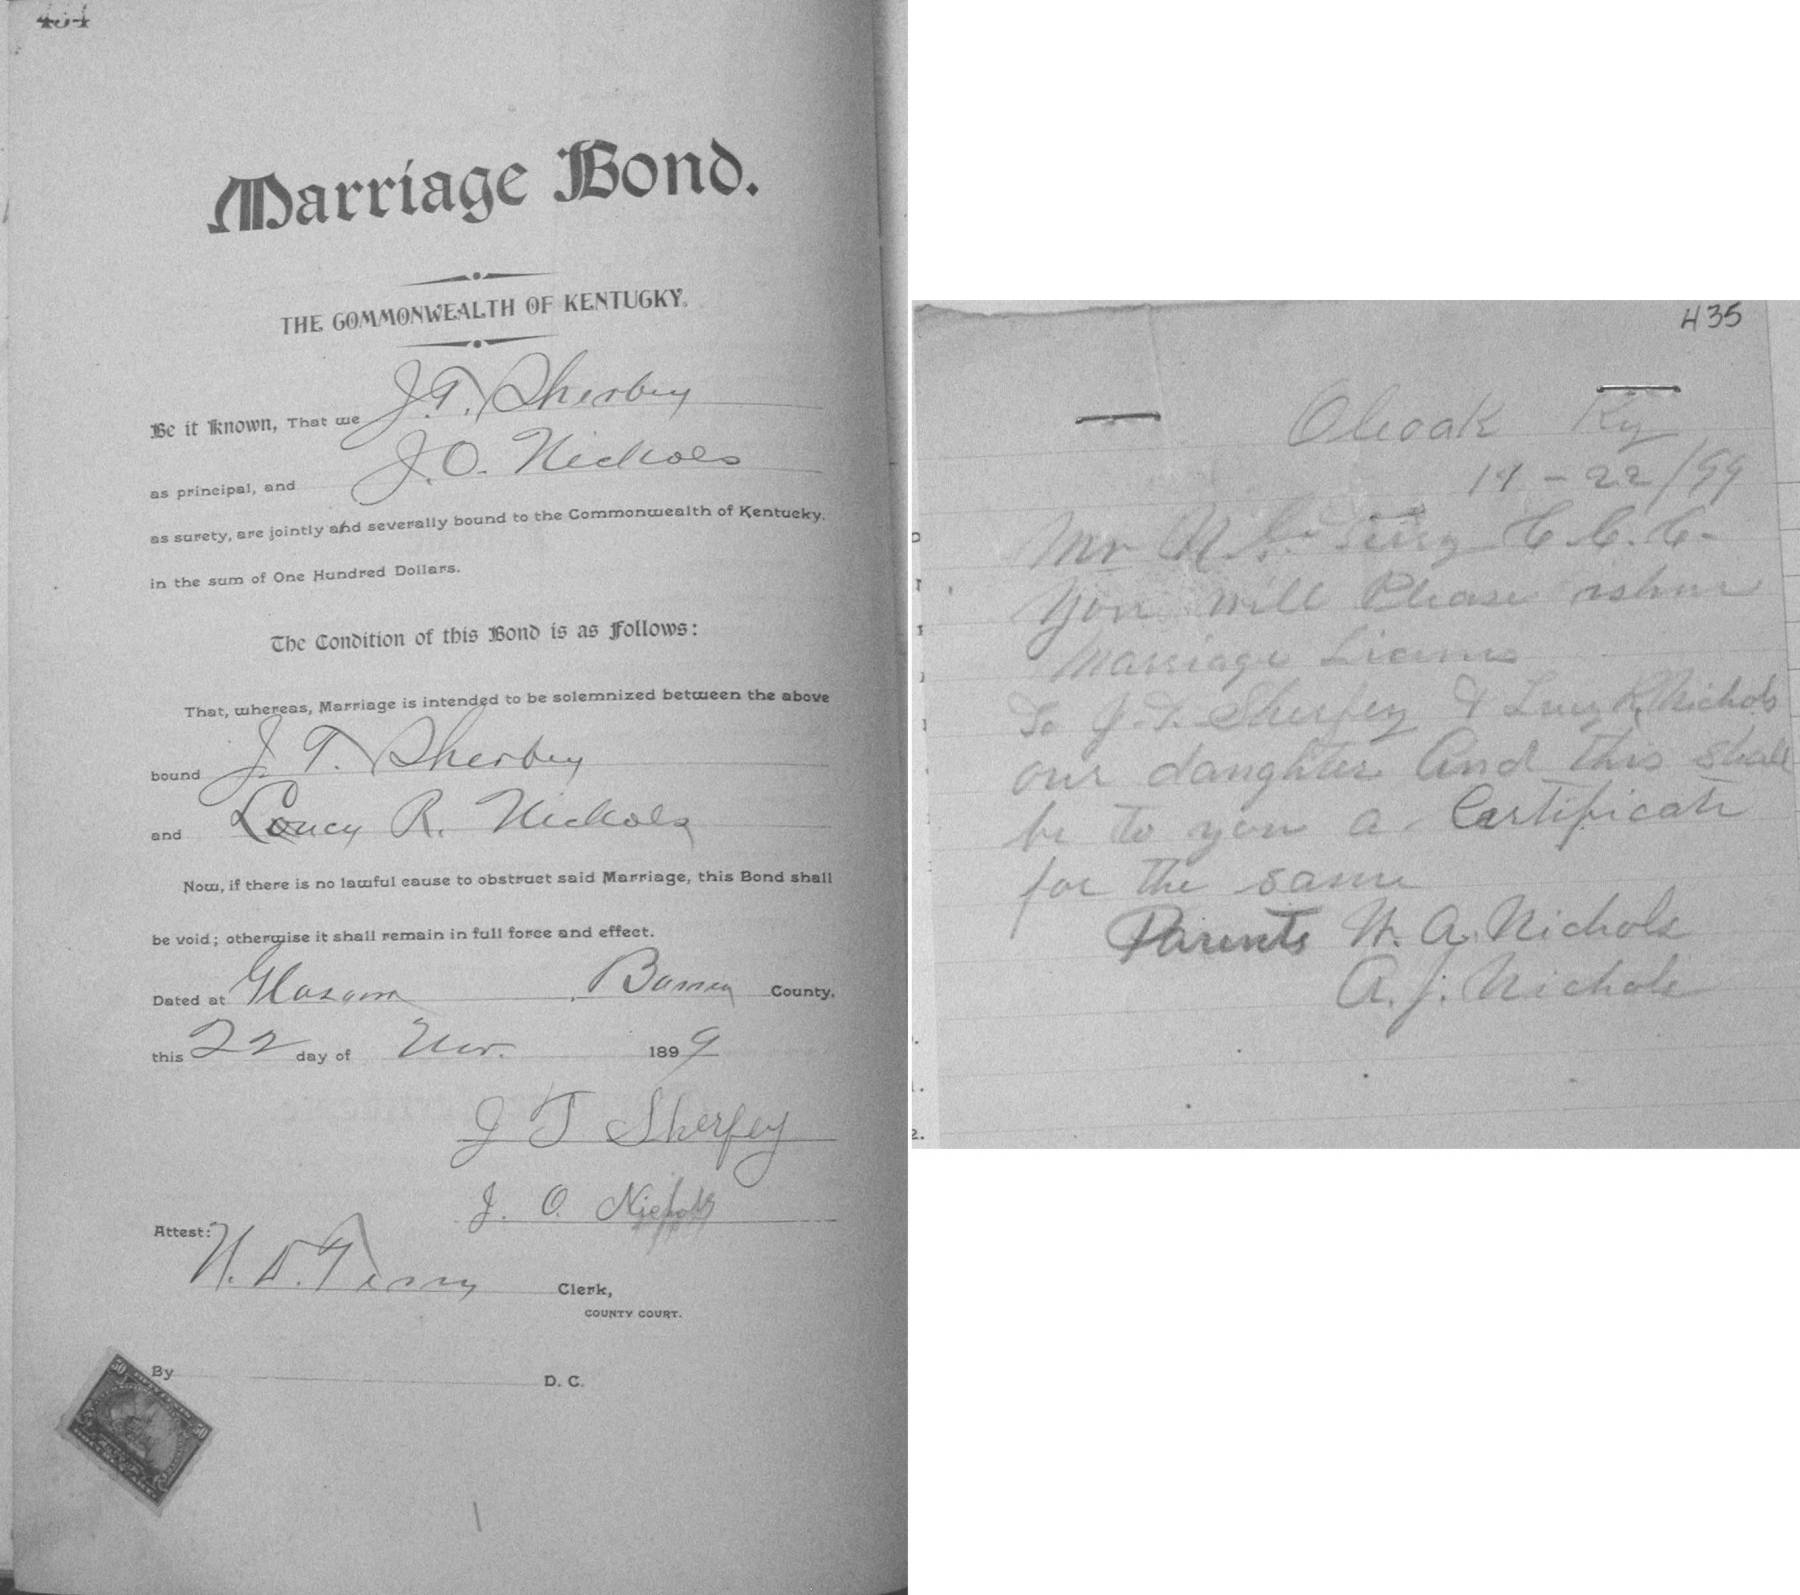 434
Marriage Bond.
THE COMMONWEALTH OF KENTUCKY.
Be it Known, That we J. T. Sherbey
as principal, and J. O. Nichols
as surety, are jointly and severally bound to the Commonwealth of Kentucky,
in the sum of One Hundred Dollars.
The Condition of this Bond is as Follows:
That, whereas, Marriage is intended to be solemnized between the above
bound J. T. Sherbey
and Loucy R. Nichols
Now, if there is no lawful cause to obstruct said Marriage, this Bond shall
be void; otherwise it shall remain in full force and effect.
Dated at Glasgow, Barren County,
this 22 day of Nov. 1899
J T Sherfey
J. O. Nichols
Attest: W. D. Terry Clerk,
COUNTY COURT.
By D. C.
50 50
435
Oleoak Ky
11-22/99
Mr W. Terry C. C. C.
You will Please ishue
Marriage Licens
To J. T. Sherfey & Lucy R. Nichols
our daughter And this shall
be to you a Certificate
for the same
Parents W. A. Nichols
A. J. Nichols